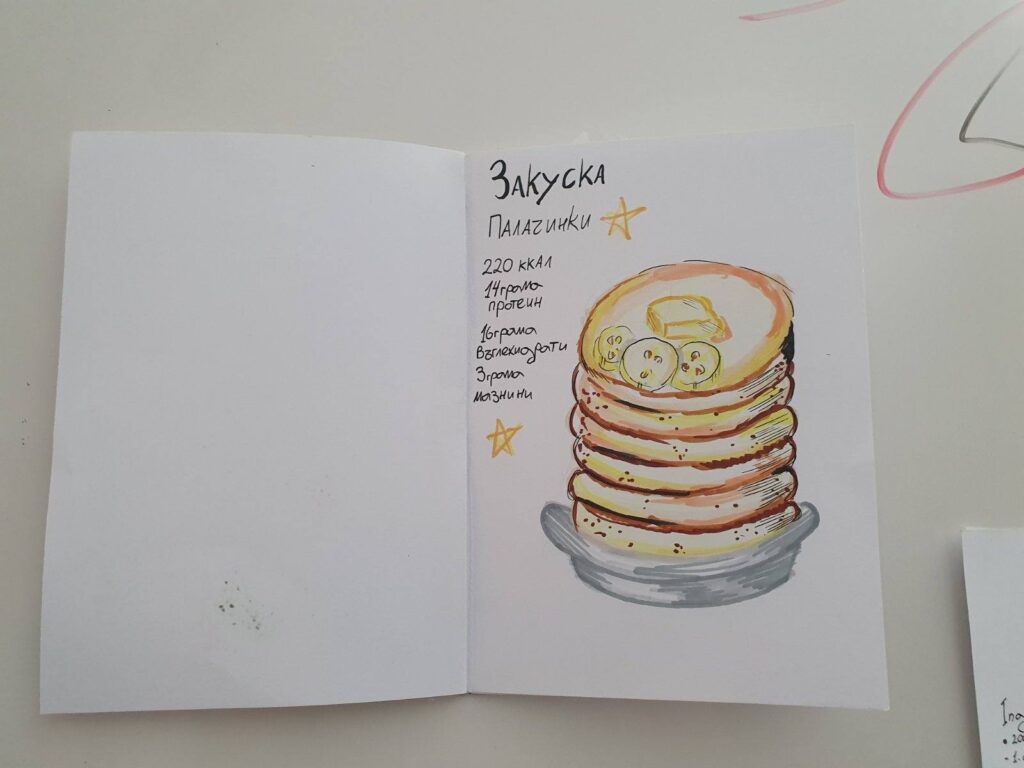 Закуска
Палачинки
220 ккал
14грама
протеин
16грама
Въглехидрати
3грама
мазнини